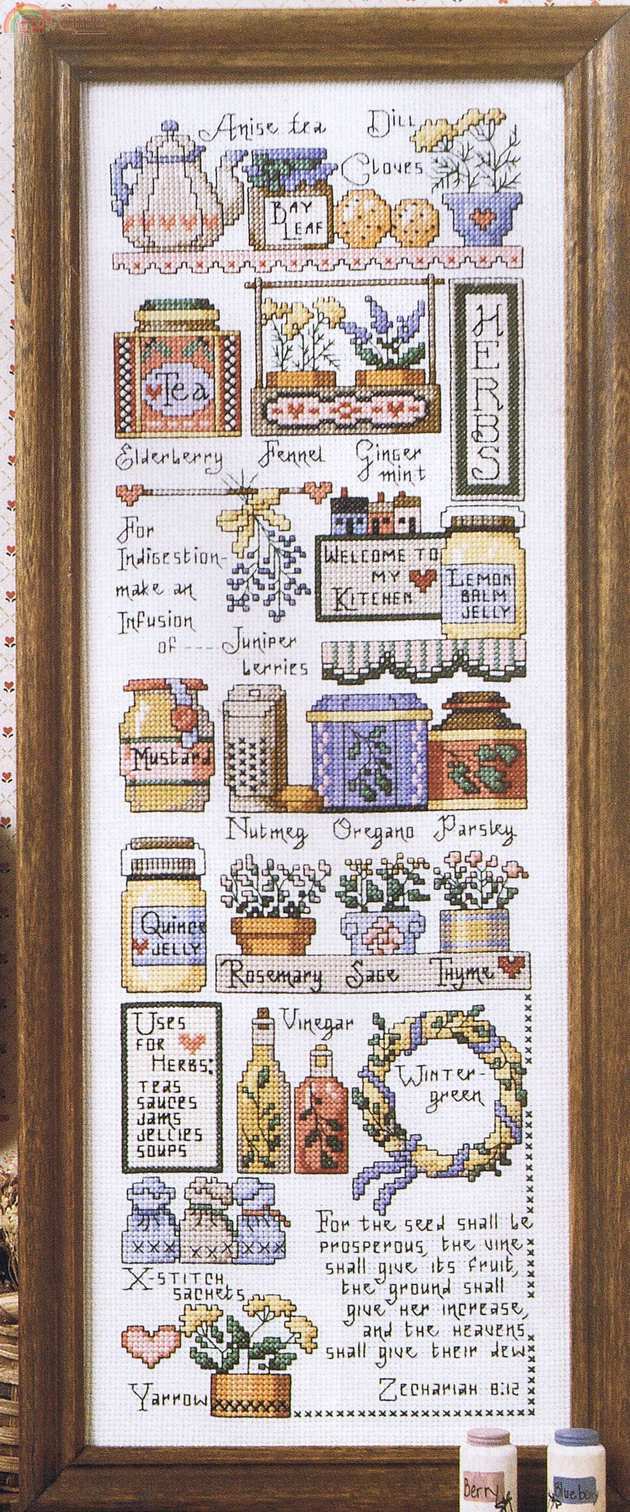 Anise tea
Dill
Cloves
BAY
LEAF
HERBS
Tea
Elderberry
Fennel
Ginger
mint
For
Indigestion-
make an
Infusion
of ---- Juniper
berries
WELCOME TO
MY
KITCHEN
LEMON
BALM
JELLY
Mustard
Nutmeg Oregano Parsley
Quince
JELLY
Rosemary Sage Thyme
USES
FOR
HERBS:
TEAS
SAUCES
JAMS
JELLIES
SOUPS
Vinegar
WINTER-
green
X-STITCH
SACHETS
For the seed shall be
prosperous, the vine
shall give its fruit,
the ground shall
give her increase,
and the heavens
shall give their dew.
ZECHARIAH 8:12
Yarrow
Berry
Blueberry